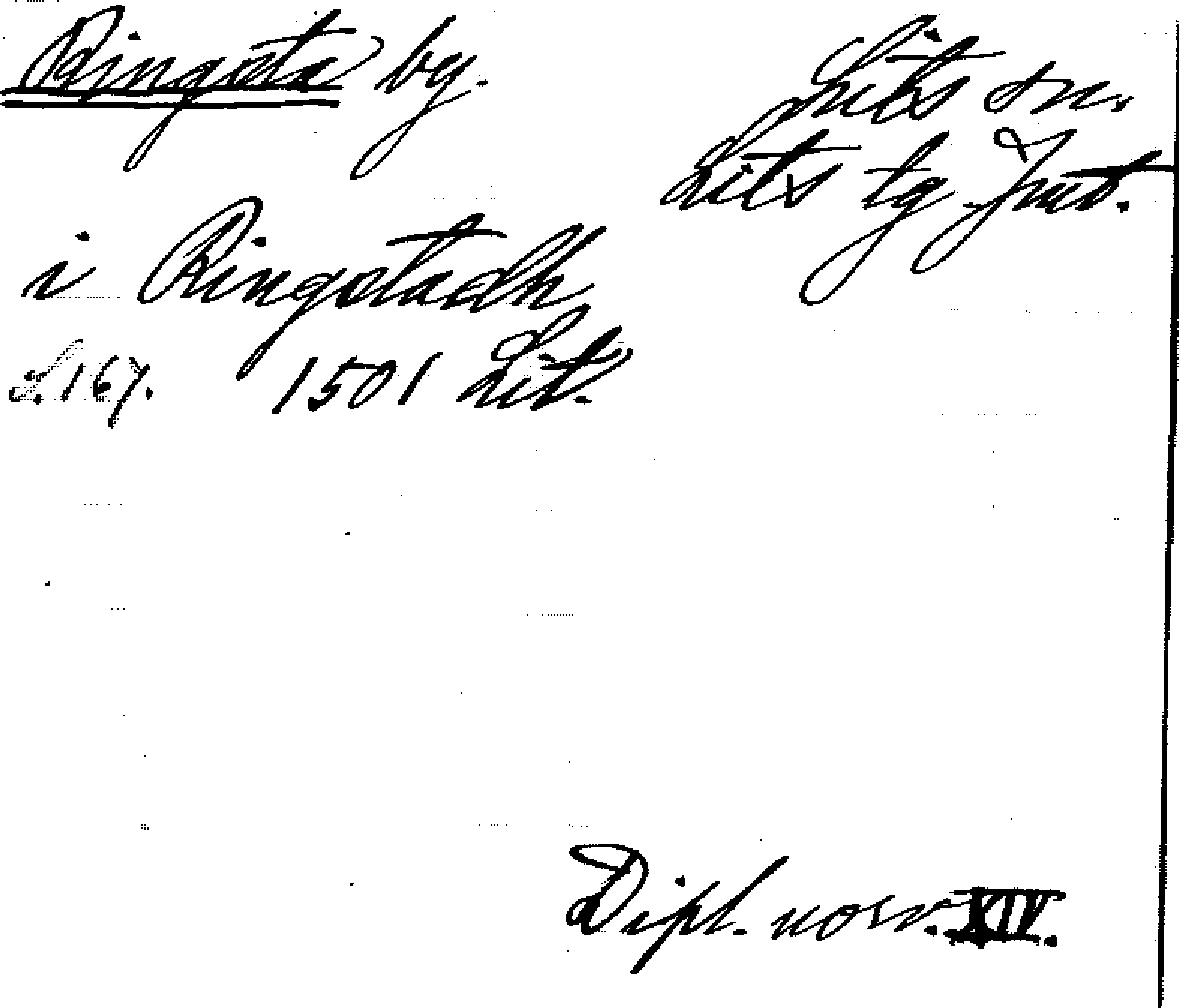 Ringsta by.
Lits sn.
Lits tg Jmt.
i Ringstadh
S. 167. 1501 Lit.
Dipl. norv. XIV.